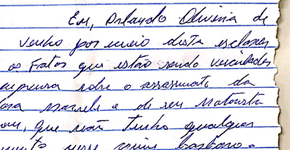 Eu, Orlando Oliveira de
venho por meio desta esclarecer
os fatos que estão sendo veiculados
imprensa sobre o assassinato da
Marielle e de seu motorista
que não tenho qualquer
nesse crime bárbaro.